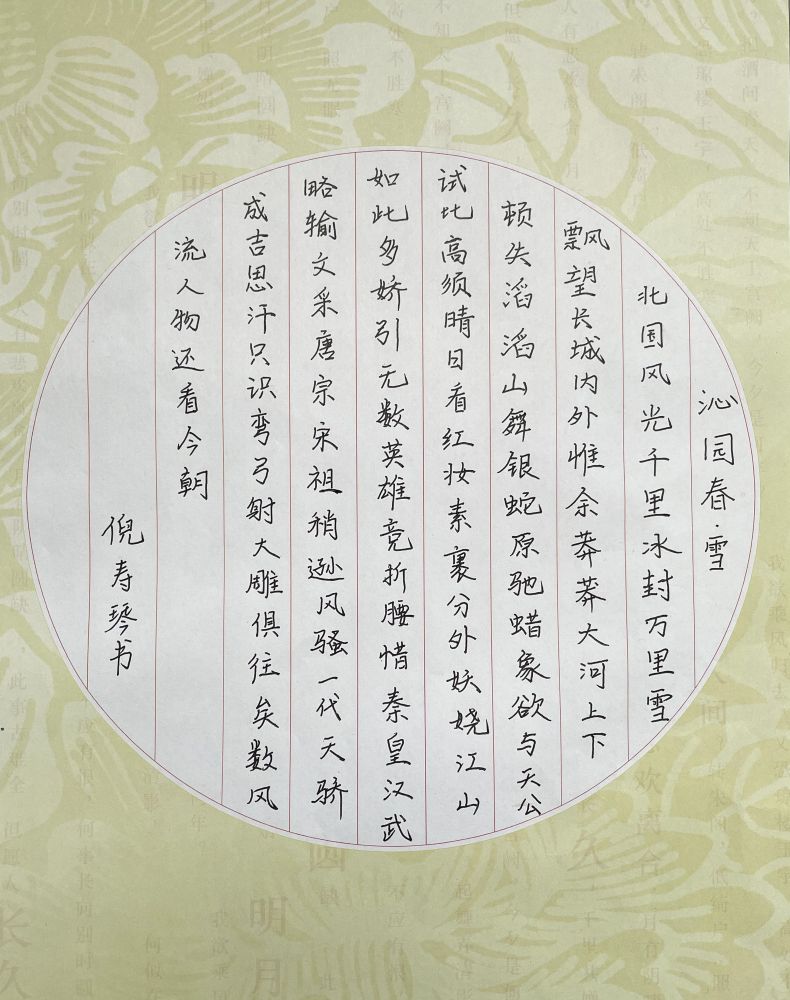 沁园春·雪
北国风光千里冰封万里雪
飘望长城内外惟余莽莽大河上下
顿失滔滔山舞银蛇原驰蜡象欲与天公
试比高须晴日看红妆素裹分外妖娆江山
如此多娇引无数英雄竞折腰惜秦皇汉武
略输文采唐宗宋祖稍逊风骚一代天骄
成吉思汗只识弯弓射大雕俱往矣数风
流人物还看今朝
倪寿琴书